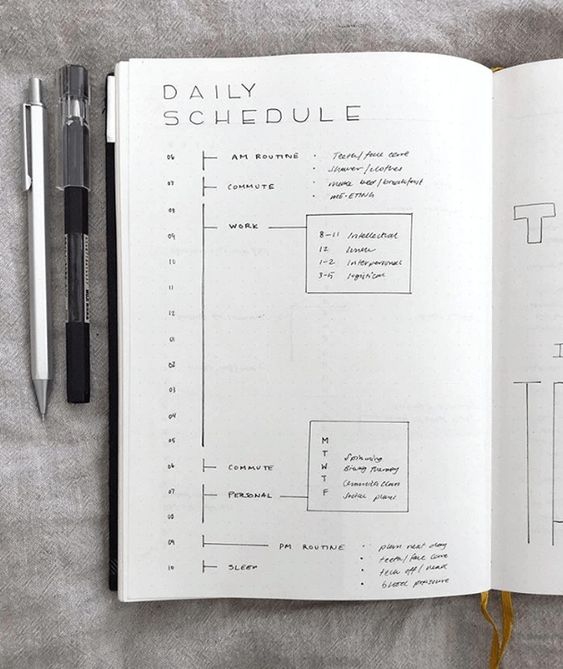 DAILY
SCHEDULE
06 AM ROUTINE • Teeth/face care
• shower/clothes
07 COMMUTE • make bed/breakfast
• ME-ETING
08
09 WORK
8-11 Intellectual
12 Lunch
1-2 Interpersonal
3-5 logistical
10
11
12
01
02
03
04
05
06 COMMUTE
07 PERSONAL
M
T Spinning
W
T
F Social plans
08
09 PM ROUTINE • plan next day
• teeth/face care
10 SLEEP • tech off/read
• blood pressure
T
I
T